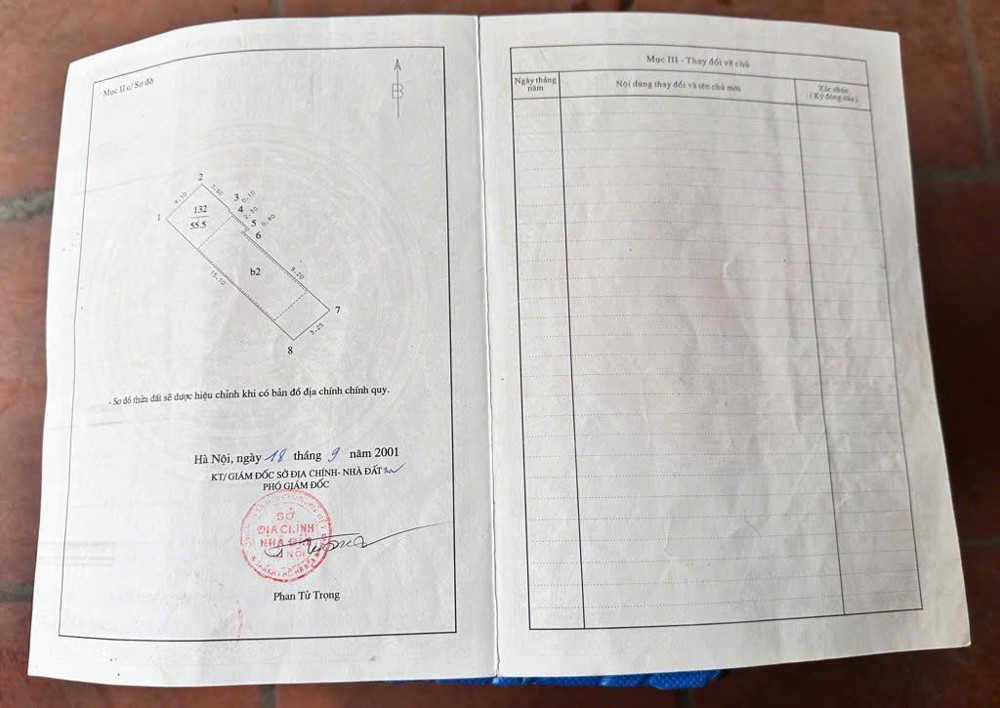 Mục II c/ Sơ đồ
B
2
4.10
3.60
3
0.10
1
132
4
2.30
55.5
5
0.40
6
b2
9.20
15.10
7
3.25
8
- Sơ đồ thửa đất sẽ được hiệu chỉnh khi có bản đồ địa chính chính quy.
Hà Nội, ngày 18 tháng 9 năm 2001
KT/ GIÁM ĐỐC SỞ ĐỊA CHÍNH- NHÀ ĐẤT
PHÓ GIÁM ĐỐC
SỞ
ĐỊA CHÍNH
NHÀ ĐẤT
HÀ NỘI
Phan Tử Trọng
Mục III - Thay đổi về chủ
Ngày tháng năm
Nội dung thay đổi và tên chủ mới
Xác nhận
(Ký đóng dấu)